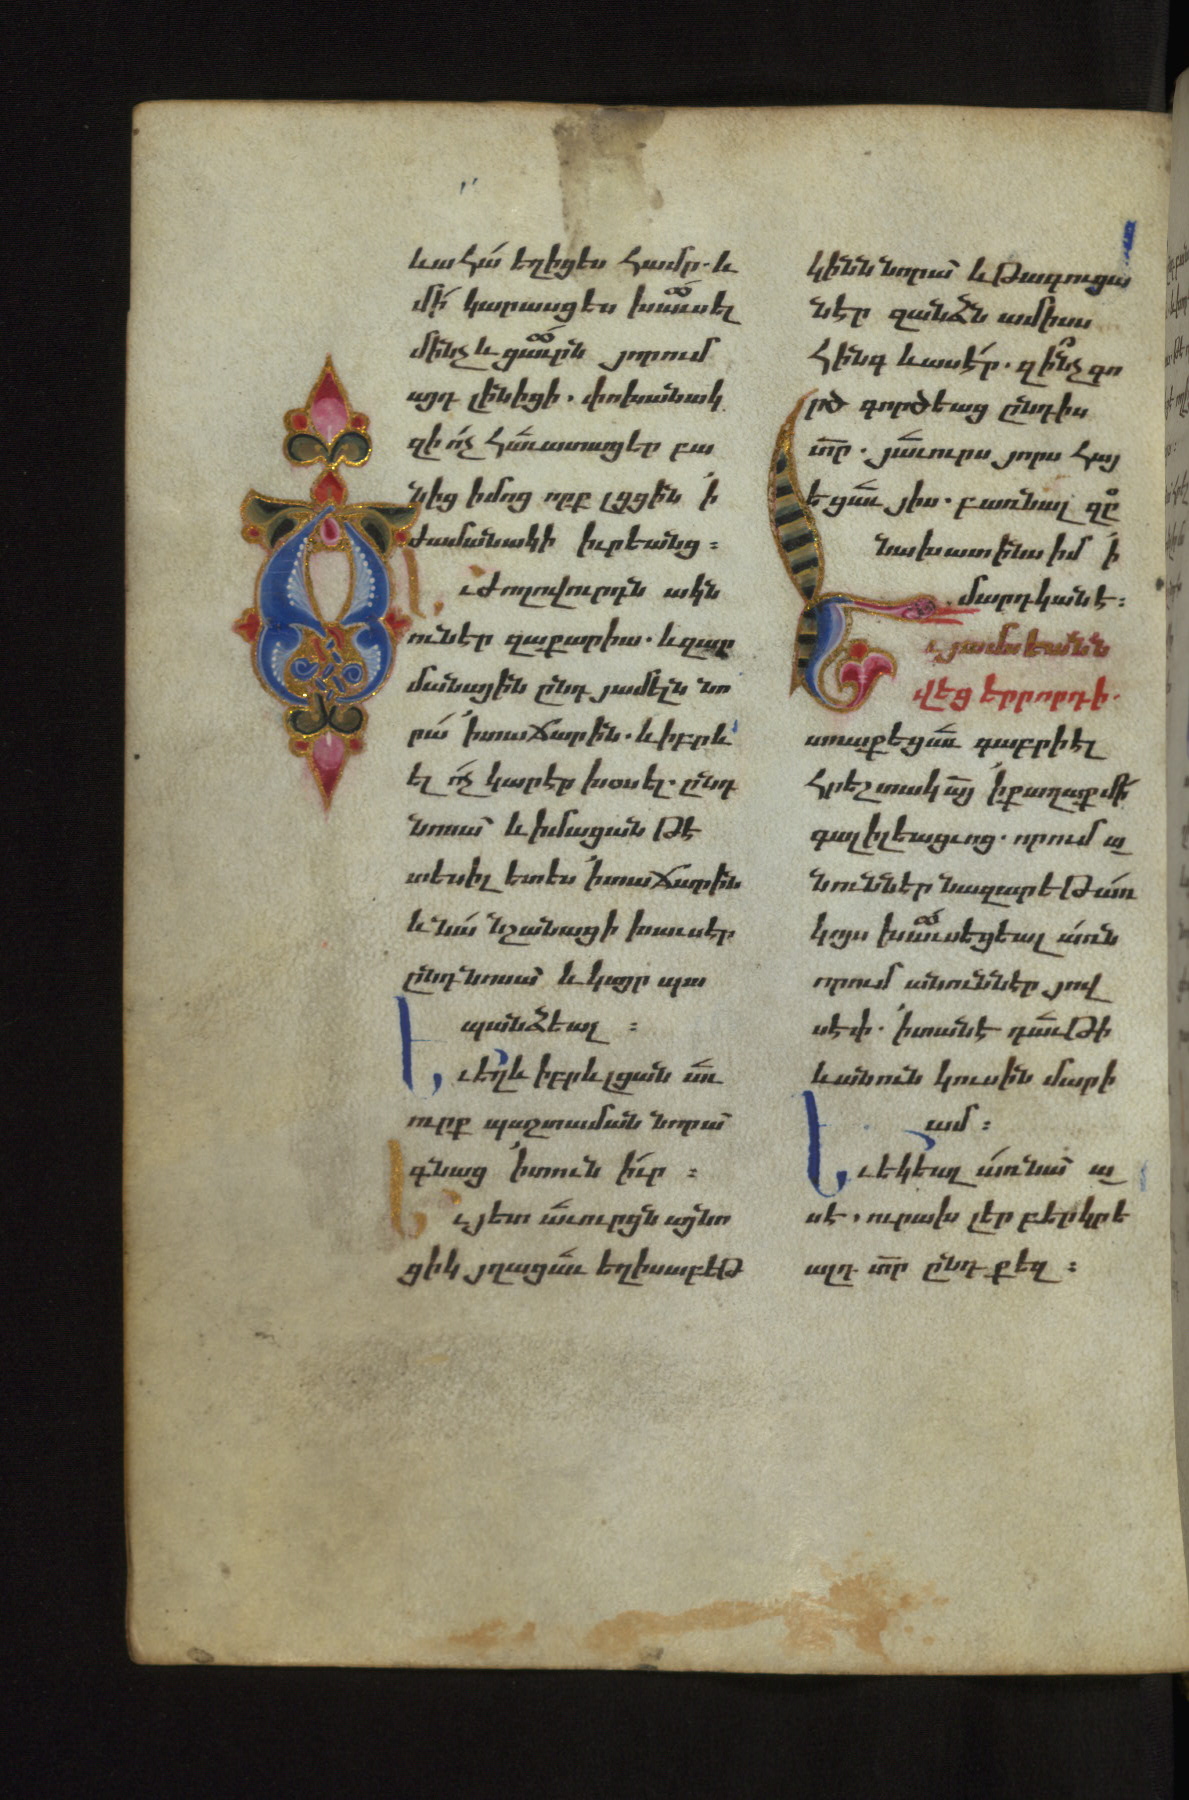 ևահա՛ եղիցես համր. և
մի՛ կարասցես խաւսել
մինչև ցաւրն յորում
այդ լինիցի. փոխանակ
զի ո՛չ հաւատացեր բա
նից իմոց որք լցցին ՚ի
ժամանակի իւրեանց :
Եւ ժողովուրդն ակն
ունէր զաքարիա. և զար
մանային ընդ յամէլն նո
րա՛ ՚ի տաճարին. և իբրև
ել ո՛չ կարէր խօսել. ընդ
նոսա՛ և իմացան թէ
տեսիլ ետես ՚ի տաճարին
և նա՛ նշանացի խաւսէր
ընդ նոսա՛ և կայր պա
պանձեալ :
Եւ եղև իբրև լցան աւ
ուրք պաշտաման նորա՛
գնաց ՚ի տուն իւր :
Եւ յետ աւուրցն այնո
ցիկ յղացաւ եղիսաբեթ
կինն նորա՛ և թագուցա
նէր զանձն ամիսս
հինգ և ասէր. զի՞նչ գո
րծ գործեաց ընդիս
տր. յաւուրս յորս հայ
եցաւ յիս. բառնալ զը
նախատինս իմ ՚ի
մարդկանէ :
Եւ յամսեանն
վեցերրորդի.
առաքեցաւ գաբրիէլ
հրեշտակ այ ՚ի քաղաք մի
գալիլեացւոց. որում ա
նուն էր նազարեթ առ
կոյս խաւսեցեալ առն
որում անուն էր յով
սէփ. ՚ի տանէ դաւթի
և անուն կուսին մարի
ամ :
Եւ եկեալ առ նա՛ ա
սէ. ուրախ լեր բերկրե
ալդ տր ընդ քեզ :